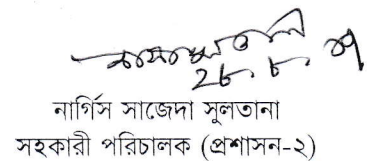 ২৮.৮.১৭
নার্গিস সাজেদা সুলতানা
সহকারী পরিচালক (প্রশাসন-২)